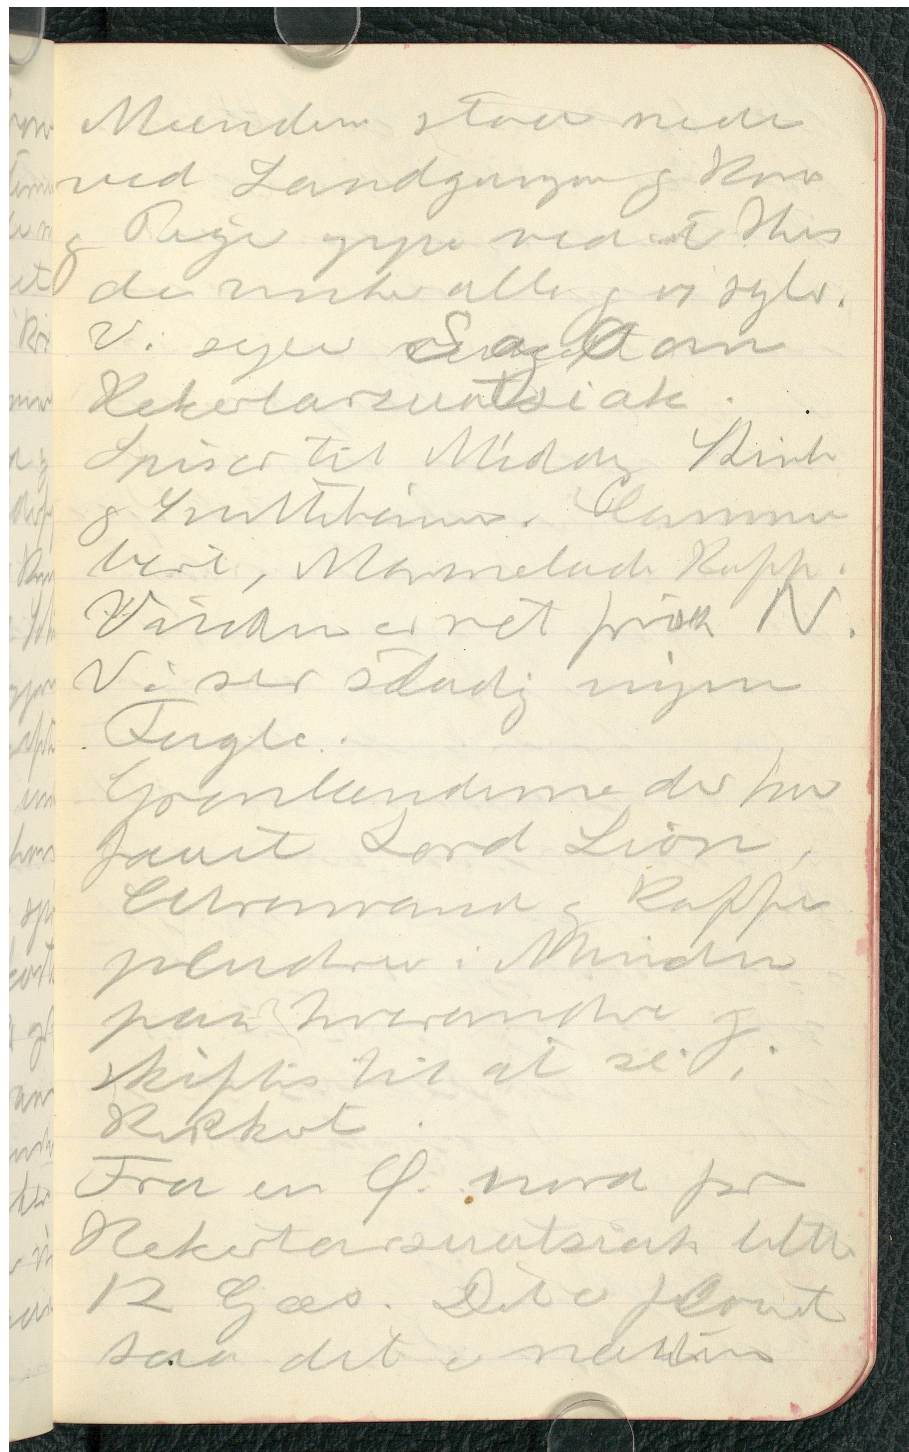 Mændene staar nede
ved Landgangen og Kone
og Piger oppe ved et Hus
de vinker alle og vi sejler.
Vi sejer S og O om
Kekertarsuatsiak.
Spiser til Middag Skink
og Snittebønner. Camem
bert, Marmelade Kaffe.
Vinden er ret frisk N.
Vi ser stadig ingen
Fugle.
Grønlænderne der har
faaet Lord Lion,
og Kaffe
pludrer i Munden
paa hverandre og
skiftes til at se i
Kikkert.
Fra en Ø. nord for
Kekertarsuatsiak letter
12 Gæs. Det er
saa det er